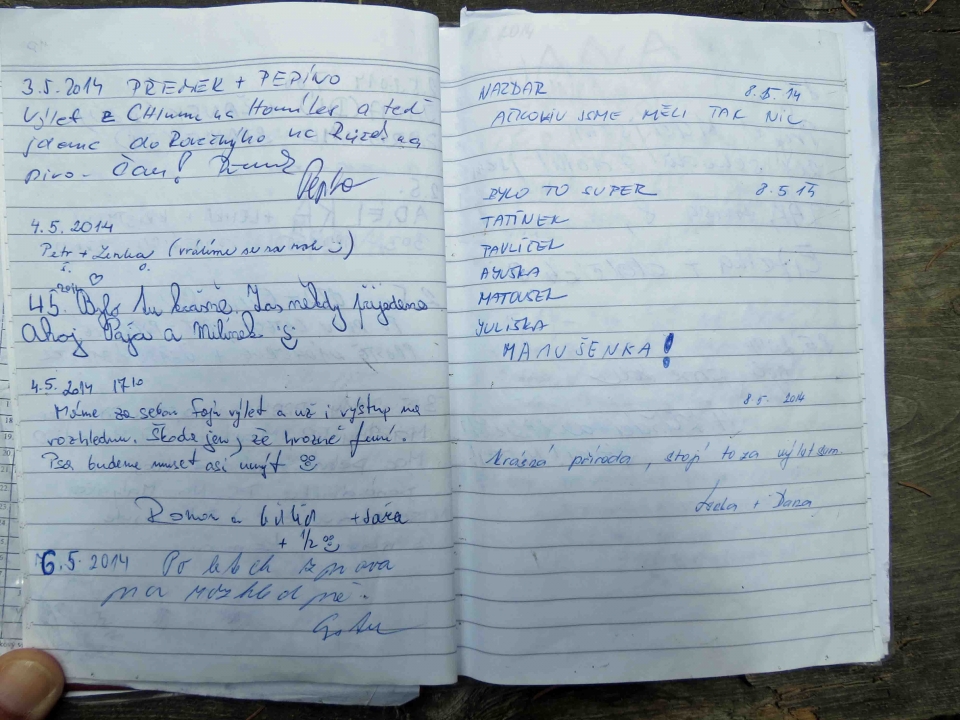 3.5.2014 PŘEMEK + PEPÍNO
Výlet z CHlumu na Homílek a teď
jdeme do na
pivo - Čau!
Pepino
4.5.2014
Petr + Lenka (vrátíme se na rok)
Š. O.
4.5. 2014 Bylo tu krásně. Zas někdy přijedeme
ahoj Pája a Milínek
4.5. 2014 17 10
Máme za sebou fajn výlet a už i výstup na
rozhlednu. Škoda jen, že hrozně funí.
Psa budeme muset asi umýt
+ Sára
+ 1/2
6.5.2014 Po letech zprava
na rozhledně.
NAZDAR 8.5.14
JSME MĚLI TAK NIC
BYLO TO SUPER 8.5 14
TATÍNEK
PAVLÍČEK
AYUŠKA
MATOUŠEK
YULIŠKA
MARUŠENKA!
8.5. 2014
Krásná příroda, stojí to za výlet sem.
+ Dana